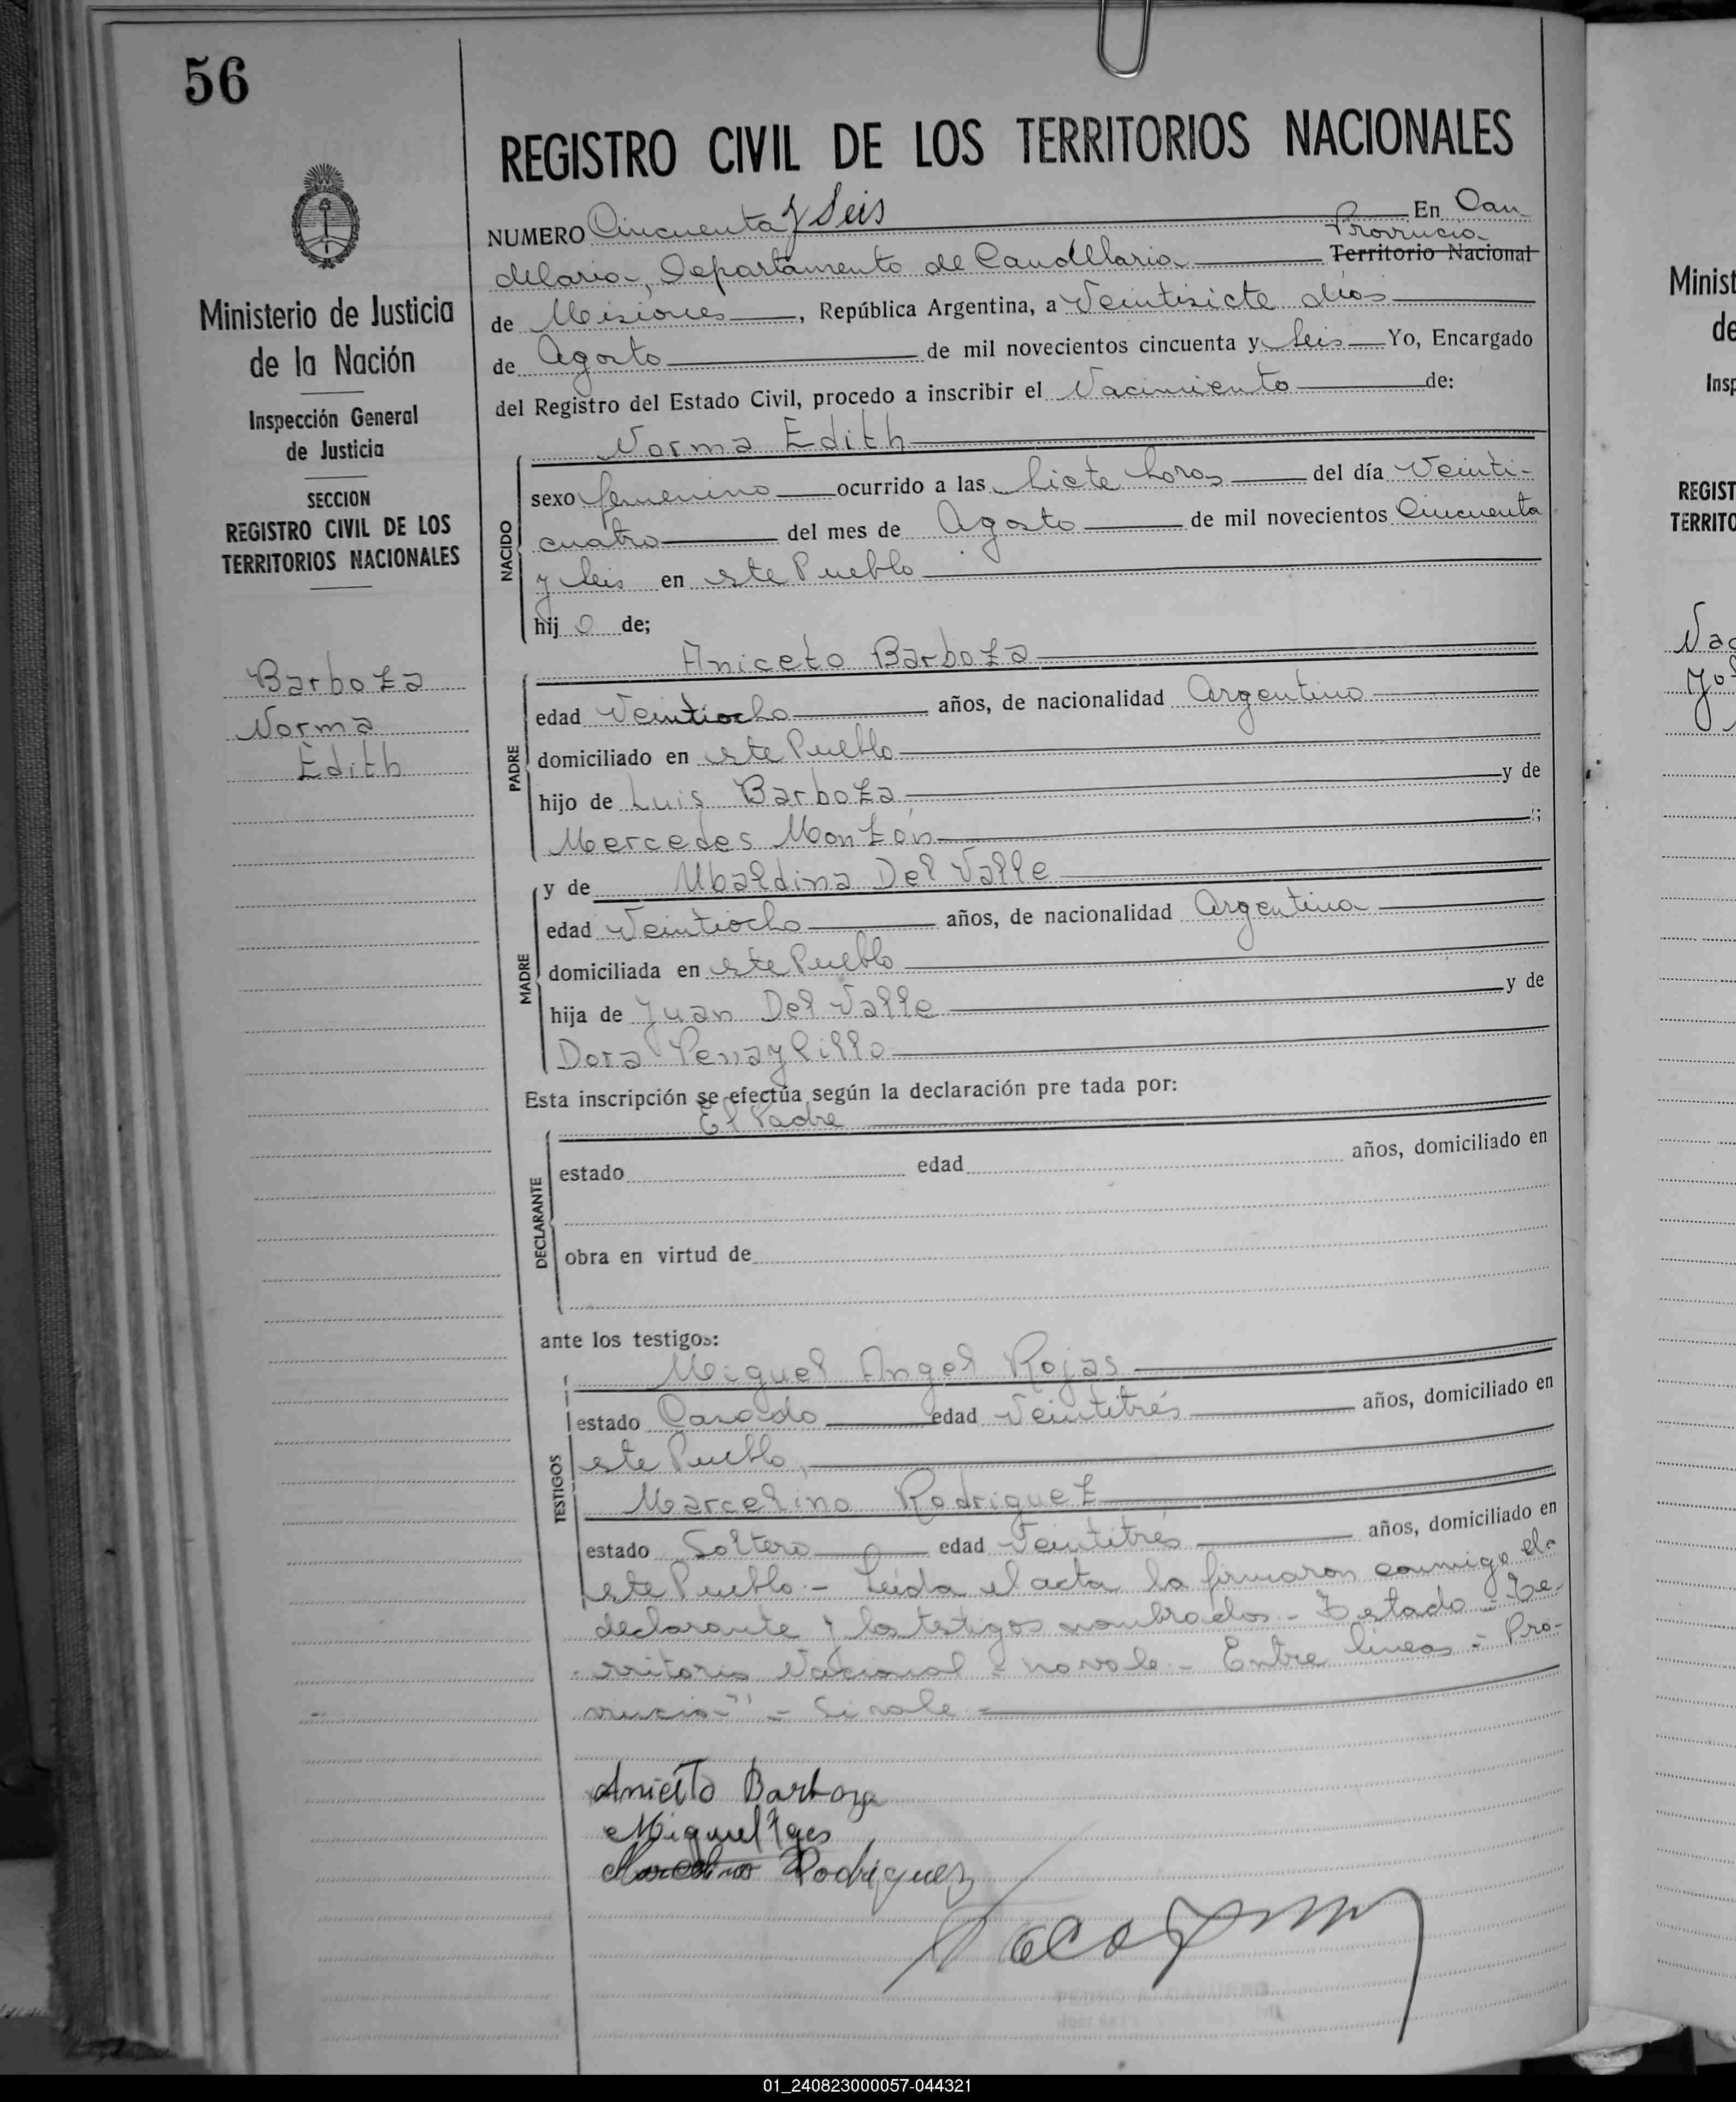 56
REGISTRO CIVIL DE LOS TERRITORIOS NACIONALES
Ministerio de Justicia
de la Nación
Inspección General
de Justicia
SECCION
REGISTRO CIVIL DE LOS
TERRITORIOS NACIONALES
Barboza
Norma
Edith
NUMERO Cincuenta y Seis En Can
Provincia
delaria, Departamento de Candelaria Territorio Nacional
de Misiones, República Argentina, a Veintisiete días
de Agosto de mil novecientos cincuenta y Seis Yo, Encargado
del Registro del Estado Civil, procedo a inscribir el Nacimiento de:
Norma Edith
NACIDO
sexo femenino ocurrido a las Siete horas del día Veinti-
cuatro del mes de Agosto de mil novecientos Cincuenta
y Seis en este Pueblo
hij a de;
Aniceto Barboza
PADRE
edad Veintiocho años, de nacionalidad Argentino
domiciliado en este Pueblo
hijo de Luis Barboza y de
Mercedes Monzón ;
MADRE
y de Ubaldina Del Valle
edad Veintiocho años, de nacionalidad Argentina
domiciliada en este Pueblo
hija de Juan Del Valle y de
Dora Penaylillo
Esta inscripción se efectúa según la declaración pre tada por:
El Padre
DECLARANTE
estado edad años, domiciliado en
obra en virtud de
ante los testigos:
Miguel Angel Rojas
TESTIGOS
estado Casado edad Veintitrés años, domiciliado en
este Pueblo,
Marcelino Rodriguez
estado Soltero edad Veintitrés años, domiciliado en
este Pueblo.- Leída el acta la firmaron conmigo el
declarante y los testigos nombrados.- Testado = Te-
rritorio Nacional = no vale - Entre líneas = Pro-
vincia" = Si vale.-
Aniceto Barboza
Miguel
Marcelino Rodriguez
Minist
de
Insp
REGIST
TERRITO
Nac
01_240823000057-044321